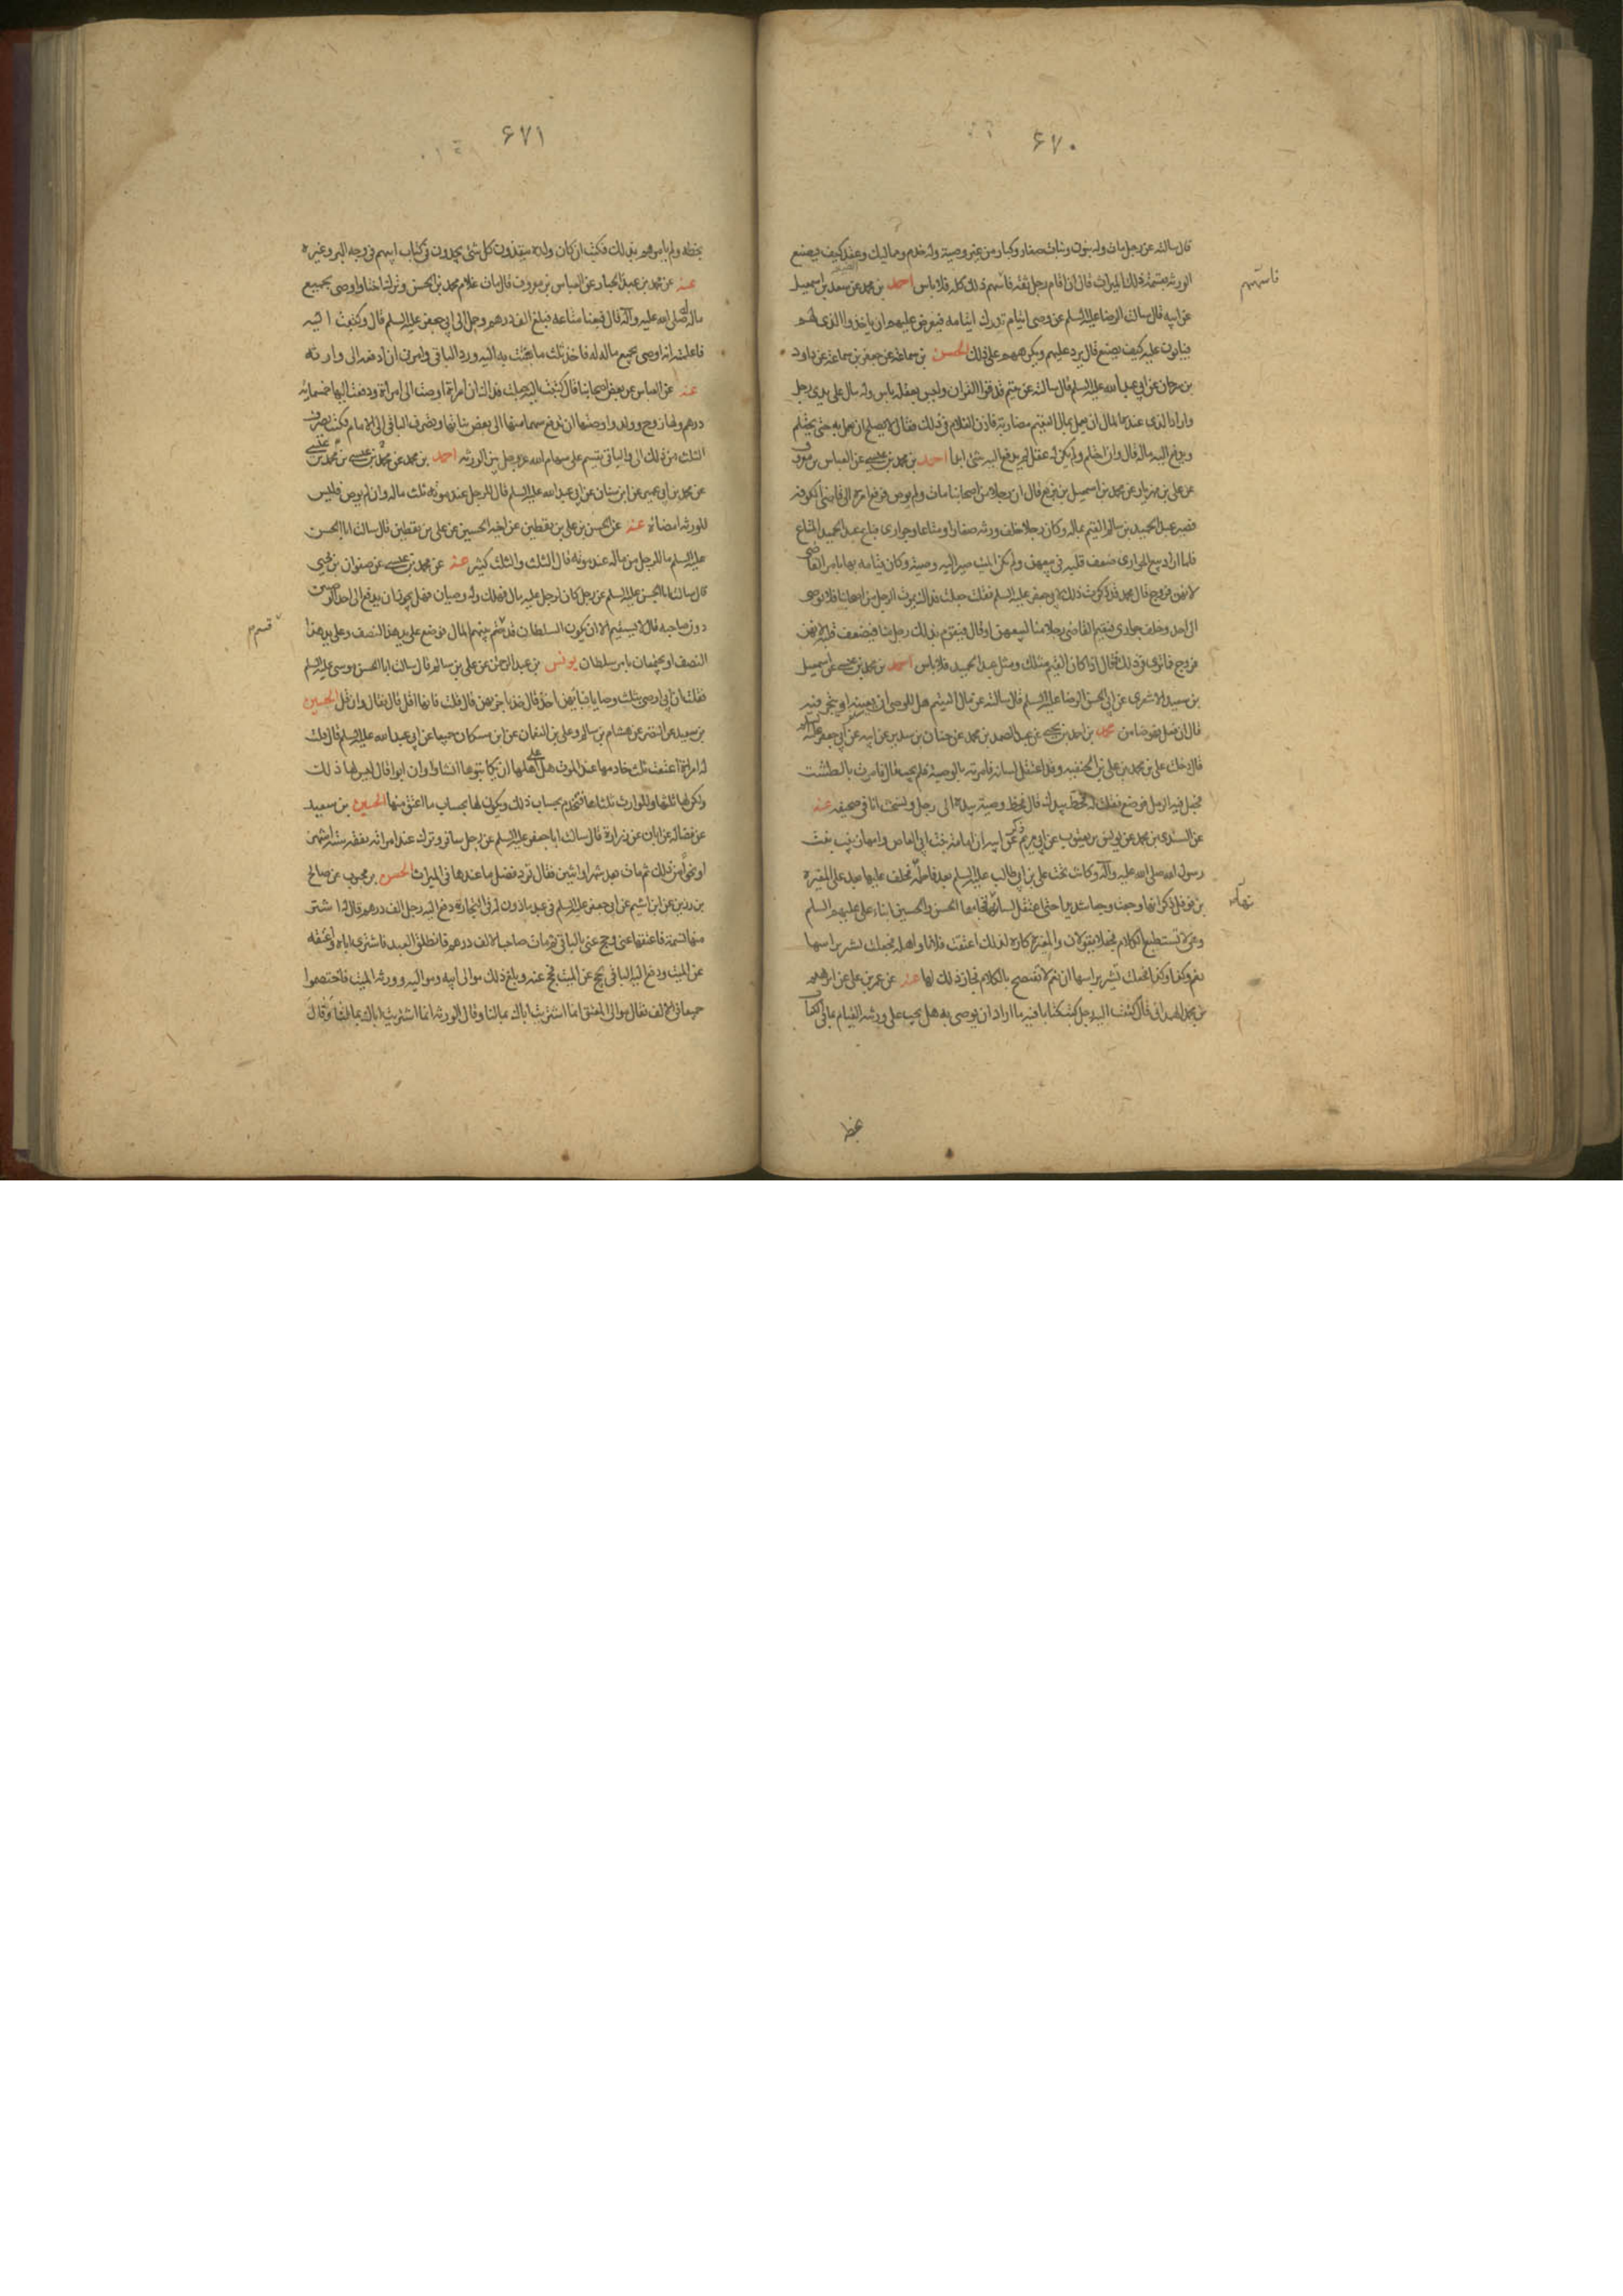 ۶۷۰
قال سالته عن رجل مات وله بنون وبنات صغار وكبار من غير وصية وله خدم ومماليك وعقد كيف يصنع
الورثة بقسمة ذلك الميراث قال ان قام رجل ثقة قاسمهم ذلك كله فلا باس احمد بن محمد عن سعد بن اسمعيل
قاسمهم
عن ابيه قال سالت الرضا عليه السلم عن وصى ايتام تدرك ايتامه فيعرض عليهم ان ياخذوا الذى لهم
فيابون عليه كيف يصنع قال يرد عليهم ويكرههم على ذلك الحسن بن سماعة عن جعفر بن سماعة عن داود
بن سرحان عن ابي عبد الله عليه السلم قال سالته عن يتيم قد قرا القران وليس بعقله باس وله مال على يدى رجل
واراد الذى عنده المال ان يعمل بمال اليتيم مضاربة فاذن الغلام فى ذلك فقال لا يصلح ان يعمل به حتى يحتلم
ويدفع اليه ماله قال وان احتلم ولم يكن له عقل لم يدفع اليه شئ ابدا احمد بن محمد بن عيسى عن العباس بن معروف
عن على بن مهزيار عن محمد بن اسمعيل بن بزيع قال ان رجلا من اصحابنا مات ولم يوص فرفع امره الى قاضى الكوفة
فصير عبد الحميد بن سالم القيم بماله وكان رجلا خلف ورثة صغارا ومتاعا وجوارى فباع عبد الحميد المتاع
فلما اراد بيع الجوارى ضعف قلبه فى بيعهن ولم يكن الميت صير اليه وصيته وكان قيامه بها بامر القاضى
لانهن فروج قال محمد فذكرت ذلك لابي جعفر عليه السلم فقلت جعلت فداك يموت الرجل من اصحابنا فلا يوصى
الى احد وخلف جوارى فيقيم القاضى رجلا منا ليبيعهن او قال فيقوم بذلك رجل منا فيضعف قلبه لانهن
فروج فما ترى فى ذلك فقال اذا كان القيم مثلك ومثل عبد الحميد فلا باس احمد بن محمد بن عيسى عن اسمعيل
بن سعد الاشعرى عن ابي الحسن الرضا عليه السلم قال سالته عن مال اليتيم هل للوصى ان يعينه او يتجر فيه
قال ان فعل فهو ضامن محمد بن احمد بن يحيى عن عبد الصمد بن محمد عن حنان بن سدير عن ابيه عن ابي جعفر عليه السلم
قال دخلت على محمد بن على بن الحنفيه وقد اعتقل لسانه فامرته بالوصية فلم يجب قال فامرت بالطشت
فجعل فيه الرمل فوضع فقلت له فخط بيدك قال فخط وصيته بيده الى رجل ونسخت انا فى صحيفه عنه
عن السندى بن محمد عن يونس بن يعقوب عن ابي مريم ذكره عن ابيه ان امامة بنت ابي العاص وامها زينب بنت
رسول الله صلى الله عليه وآله وكانت تحت على بن ابي طالب عليه السلم بعد فاطمة فخلف عليها بعد على المغيرة
بن نوفل فذكر انها وجعت وجعا شديدا حتى اعتقل لسانها فجاءها الحسن والحسين ابناء على عليهم السلم
وهى لا تستطيع الكلام فجعلا يقولان والمغيرة كاره لذلك اعتقت فلانا واهله فجعلت تشير براسها
نعم وكذا وكذا فجعلت تشير براسها ان نعم لا تفصح بالكلام فجاز ذلك لها عنه عن عمر بن على عن ابرهيم
بن محمد الهمدانى قال كتبت اليه رجل كتب كتابا فيه ما اراد ان يوصى به هل يجب على ورثته القيام بما فى الكتاب
بخطه
۶۷۱
بخطه ولم يامرهم بذلك فكتب ان كان ولده ينفذون كل شئ يجدون فى كتاب ابيهم فى وجه البر وغيره
عنه عن محمد بن عبد الجبار عن العباس بن معروف قال مات غلام محمد بن الحسن وترك اختا واوصى بجميع
ماله له صلى الله عليه وآله قال فبعنا متاعه فبلغ الف درهم وحمل الى ابي جعفر عليه السلم قال وكتبت اليه
فاعلمته انه اوصى بجميع ماله له فاخذ ثلث ما بعثت به اليه ورد الباقى وامرنى ان ادفعه الى وارثه
عنه عن العباس عن بعض اصحابنا قال كتبت اليه جعلت فداك ان امراة اوصت الى امراة ودفعت اليها خمسمائه
درهم ولها زوج وولد واوصتها ان تدفع سهما منها الى بعض بناتها وتصرف الباقى الى الامام فكتب يصرف
الثلث من ذلك الى والباقى يقسم على سهام الله عز وجل بين الورثه احمد بن محمد بن عيسى
عن محمد بن ابي عمير عن ابن سنان عن ابي عبد الله عليه السلم قال للرجل عند موته ثلث ماله وان لم يوص فليس
للورثه امضائه عنه عن الحسن بن على بن يقطين عن اخيه الحسين عن على بن يقطين قال سالت ابا الحسن
عليه السلم ما للرجل من ماله عند موته قال الثلث والثلث كثير عنه عن محمد بن عيسى عن صفوان بن يحيى
قال سالت ابا الحسن عليه السلم عن رجل كان لرجل عليه مال فهلك وله وصيان فهل يجوز ان يدفع الى احد الوصيين
دون صاحبه قال لا يستقيم الا ان يكون السلطان قد قسم بينهم المال فوضع على يد هذا النصف وعلى يد هذا
قسم م
النصف او يجتمعان بامر سلطان يونس بن عبد الرحمن عن على بن سالم قال سالت ابا الحسن موسى عليه السلم
فقلت ان ابي اوصى بثلث وصايا فبايهن اخذ قال خذ باخرهن قال قلت فانها اقل قال فقال وان قل الحسين
بن سعيد عن النضر عن هشام بن سالم وعلى بن النعمان عن ابن مسكان جميعا عن ابي عبد الله عليه السلم قال قلت
له امراة اعتقت ثلث خادمها عند الموت هل على اهلها ان يكاتبوها ان شاؤا وان ابوا قال ليس لها ذلك
ولكن لها ثلثها وللوارث ثلثاها فتخدم بحساب ذلك ويكون لها بحساب ما اعتق منها الحسين بن سعيد
عن فضاله عن ابان عن زرارة قال سالت ابا جعفر عليه السلم عن رجل سافر وترك عند امراته نفقه ستة اشهر
او نحوا من ذلك ثم مات بعد شهر او اثنين فقال ترد فضل ما عندها فى الميراث الحسن بن محبوب عن صالح
بن رزين عن ابن اشيم عن ابي جعفر عليه السلم فى عبد ماذون له فى التجارة دفع اليه رجل الف درهم قال له اشتر
منها نسمة فاعتقها عنى وحج عنى بالباقى ثم مات صاحب الالف درهم فانطلق العبد فاشترى اباه فاعتقه
عن الميت ودفع اليه الباقى يحج عن الميت فحج عنه وبلغ ذلك موالى ابيه ومواليه وورثه الميت فاختصموا
جميعا فى الالف فقال موالى المعتق انما اشتريت اباك بمالنا وقال الورثه انما اشتريت اباك بمالنا وقال